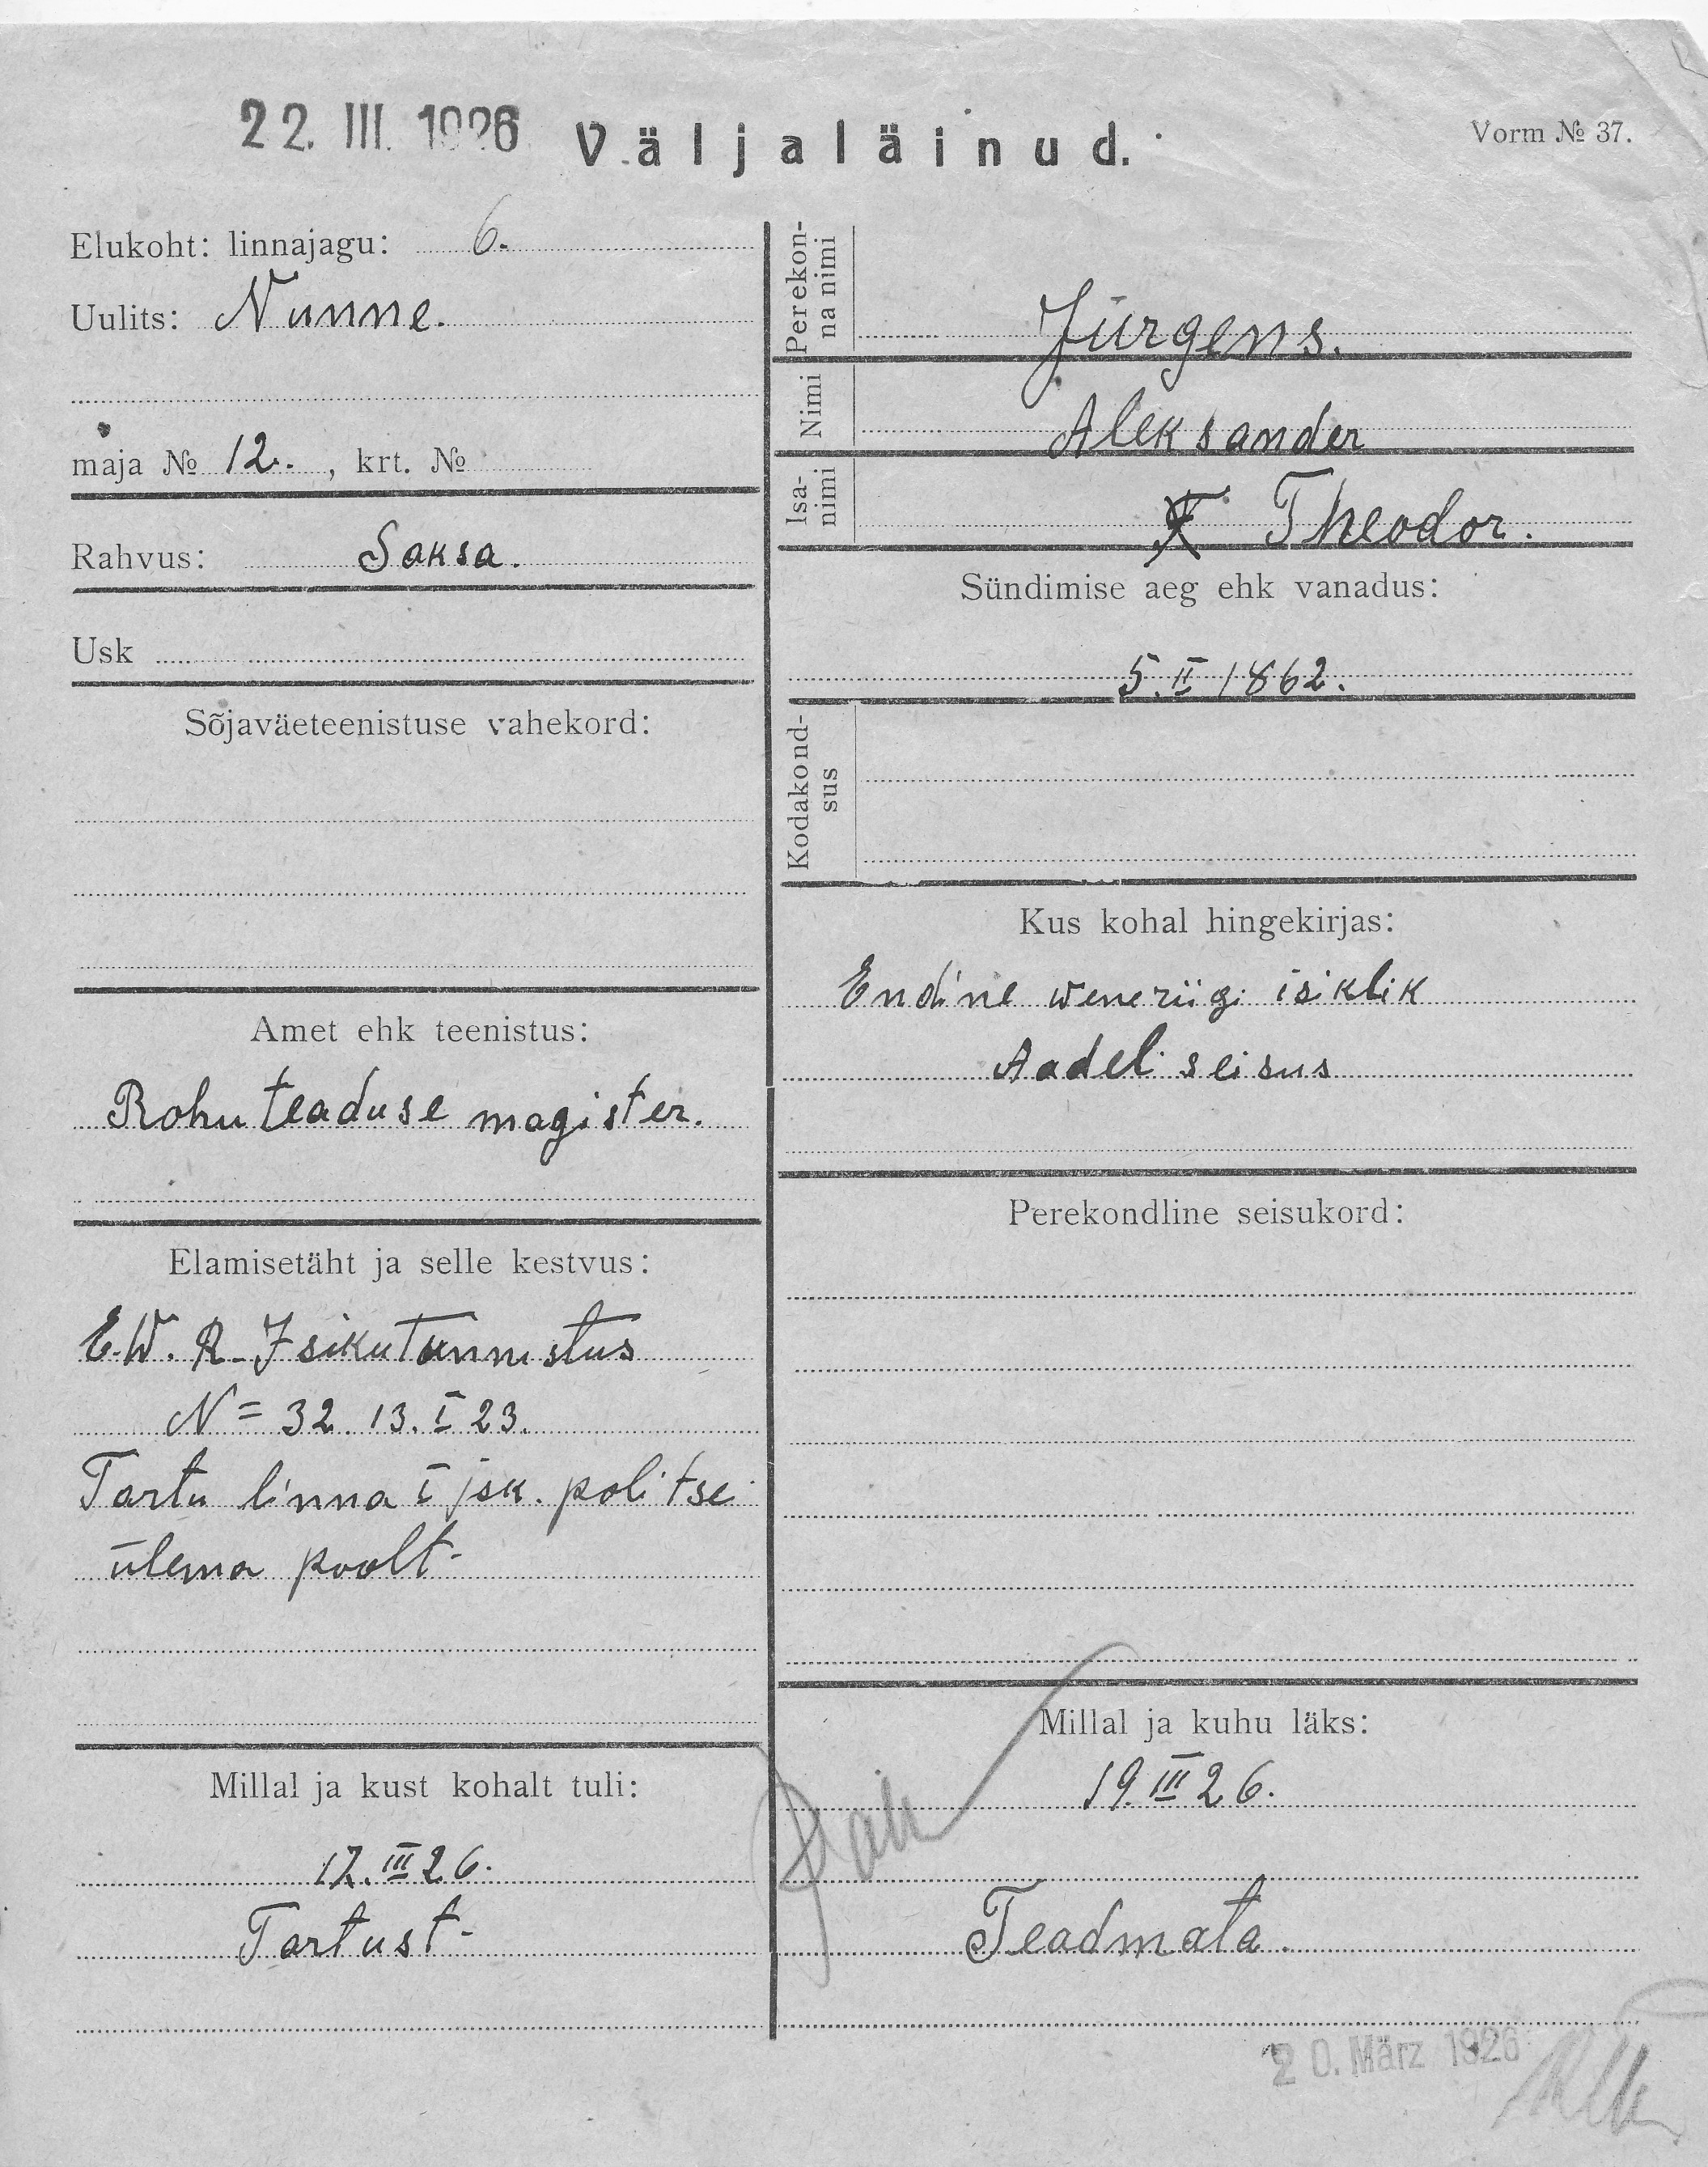 22. III. 1926
Väljaläinud.
Vorm № 37.
Elukoht: linnajagu: 6.
Uulits: Nunne.
maja № 12. , krt. №
Rahvus: Saksa.
Usk
Sõjaväeteenistuse vahekord:
Amet ehk teenistus:
Rohuteaduse magister.
Elamisetäht ja selle kestvus:
E.W. R- Isikutunnistus
N= 32. 13. I 23.
Tartu linna I jsk. politse
ülema poolt-
Millal ja kust kohalt tuli:
17. III 26.
Tartust-
Perekon-
na nimi
Jürgens.
Nimi
Aleksander
Isa-
nimi
Theodor.
Sündimise aeg ehk vanadus:
5. II 1862.
Kodakond-
sus
Kus kohal hingekirjas:
Endine weneriigi isiklik
Aadeli seisus
Perekondline seisukord:
Millal ja kuhu läks:
19. III 26.
Teadmata.
20. März 1926